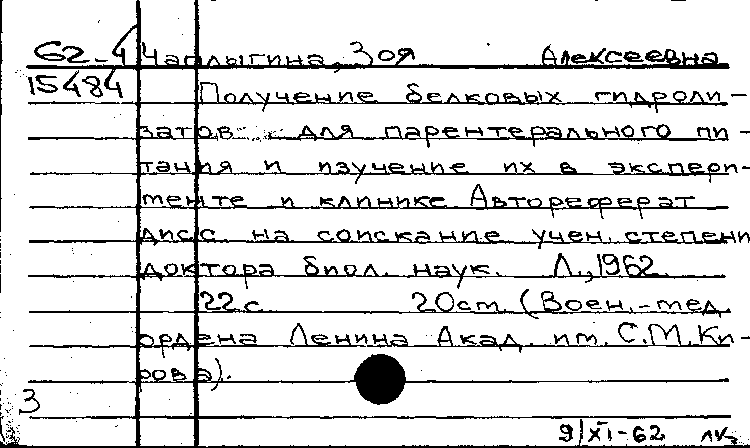 62-4 Чаплыгина, Зоя Алексеевна
15484 Получение белковых гидроли-
затов для парентерального пи-
тания и изучение их в экспери-
менте и клинике Автореферат
дисс. на соискание учен. степени
доктора биол. наук. Л., 1962.
22 с. 20 см. (Воен.-мед.
ордена Ленина Акад. им. С.М. Ки-
рова).
3
9/XI-62